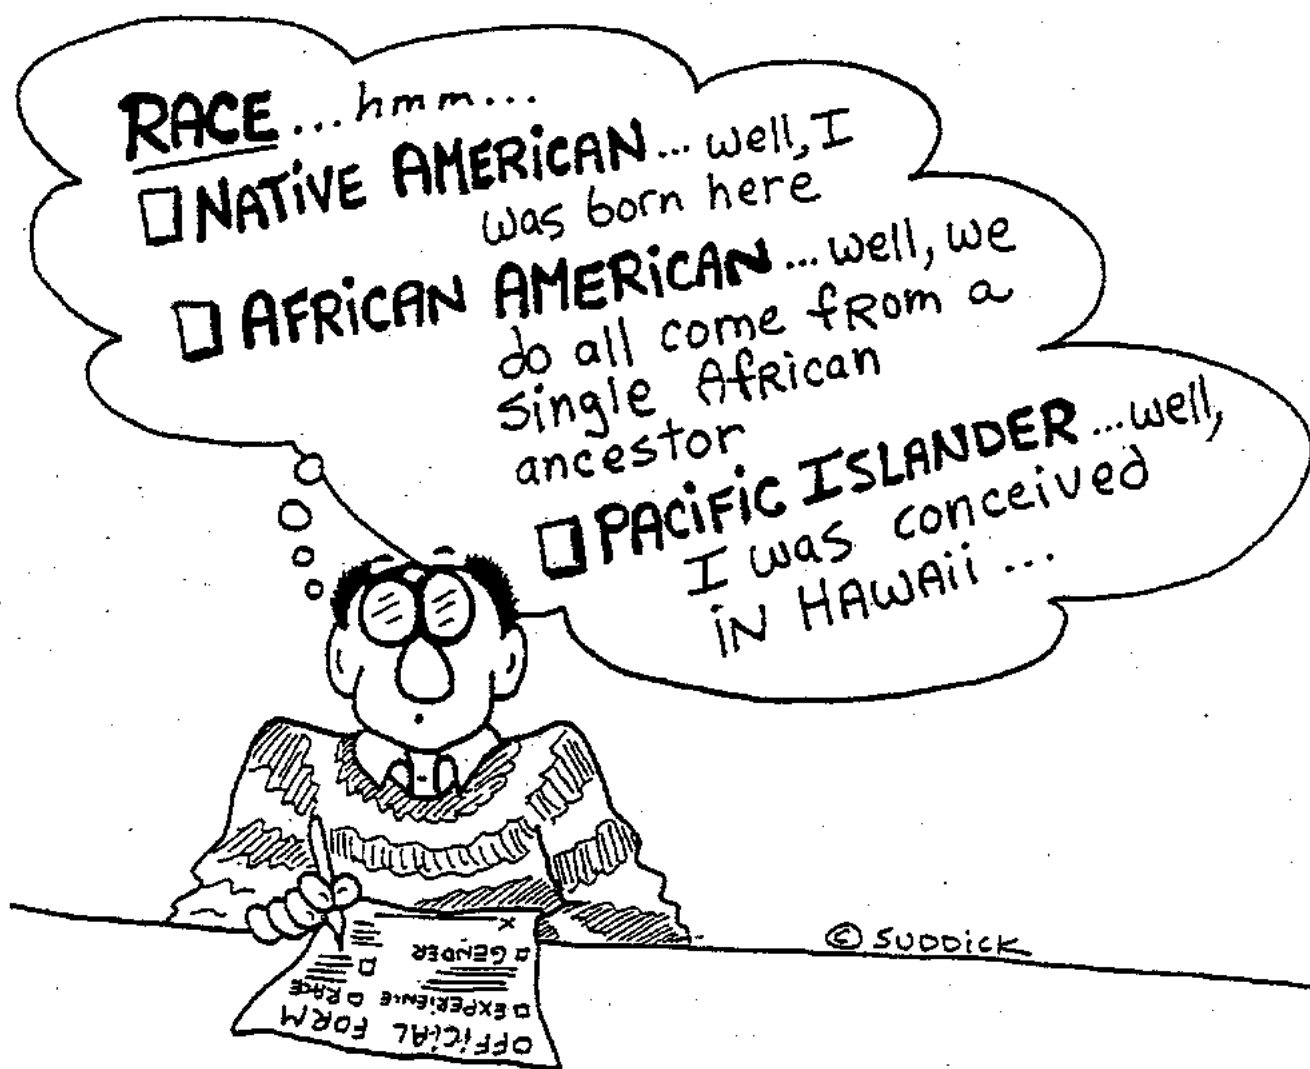 RACE ...hmm...
NATIVE AMERICAN... well, I
was born here
AFRICAN AMERICAN...well, we
do all come from a
single African
ancestor
PACIFIC ISLANDER...well,
I was conceived
IN HAWAII ...
© SUDDICK
OFFICIAL FORM
EXPERIENCE RACE
GENDER
X